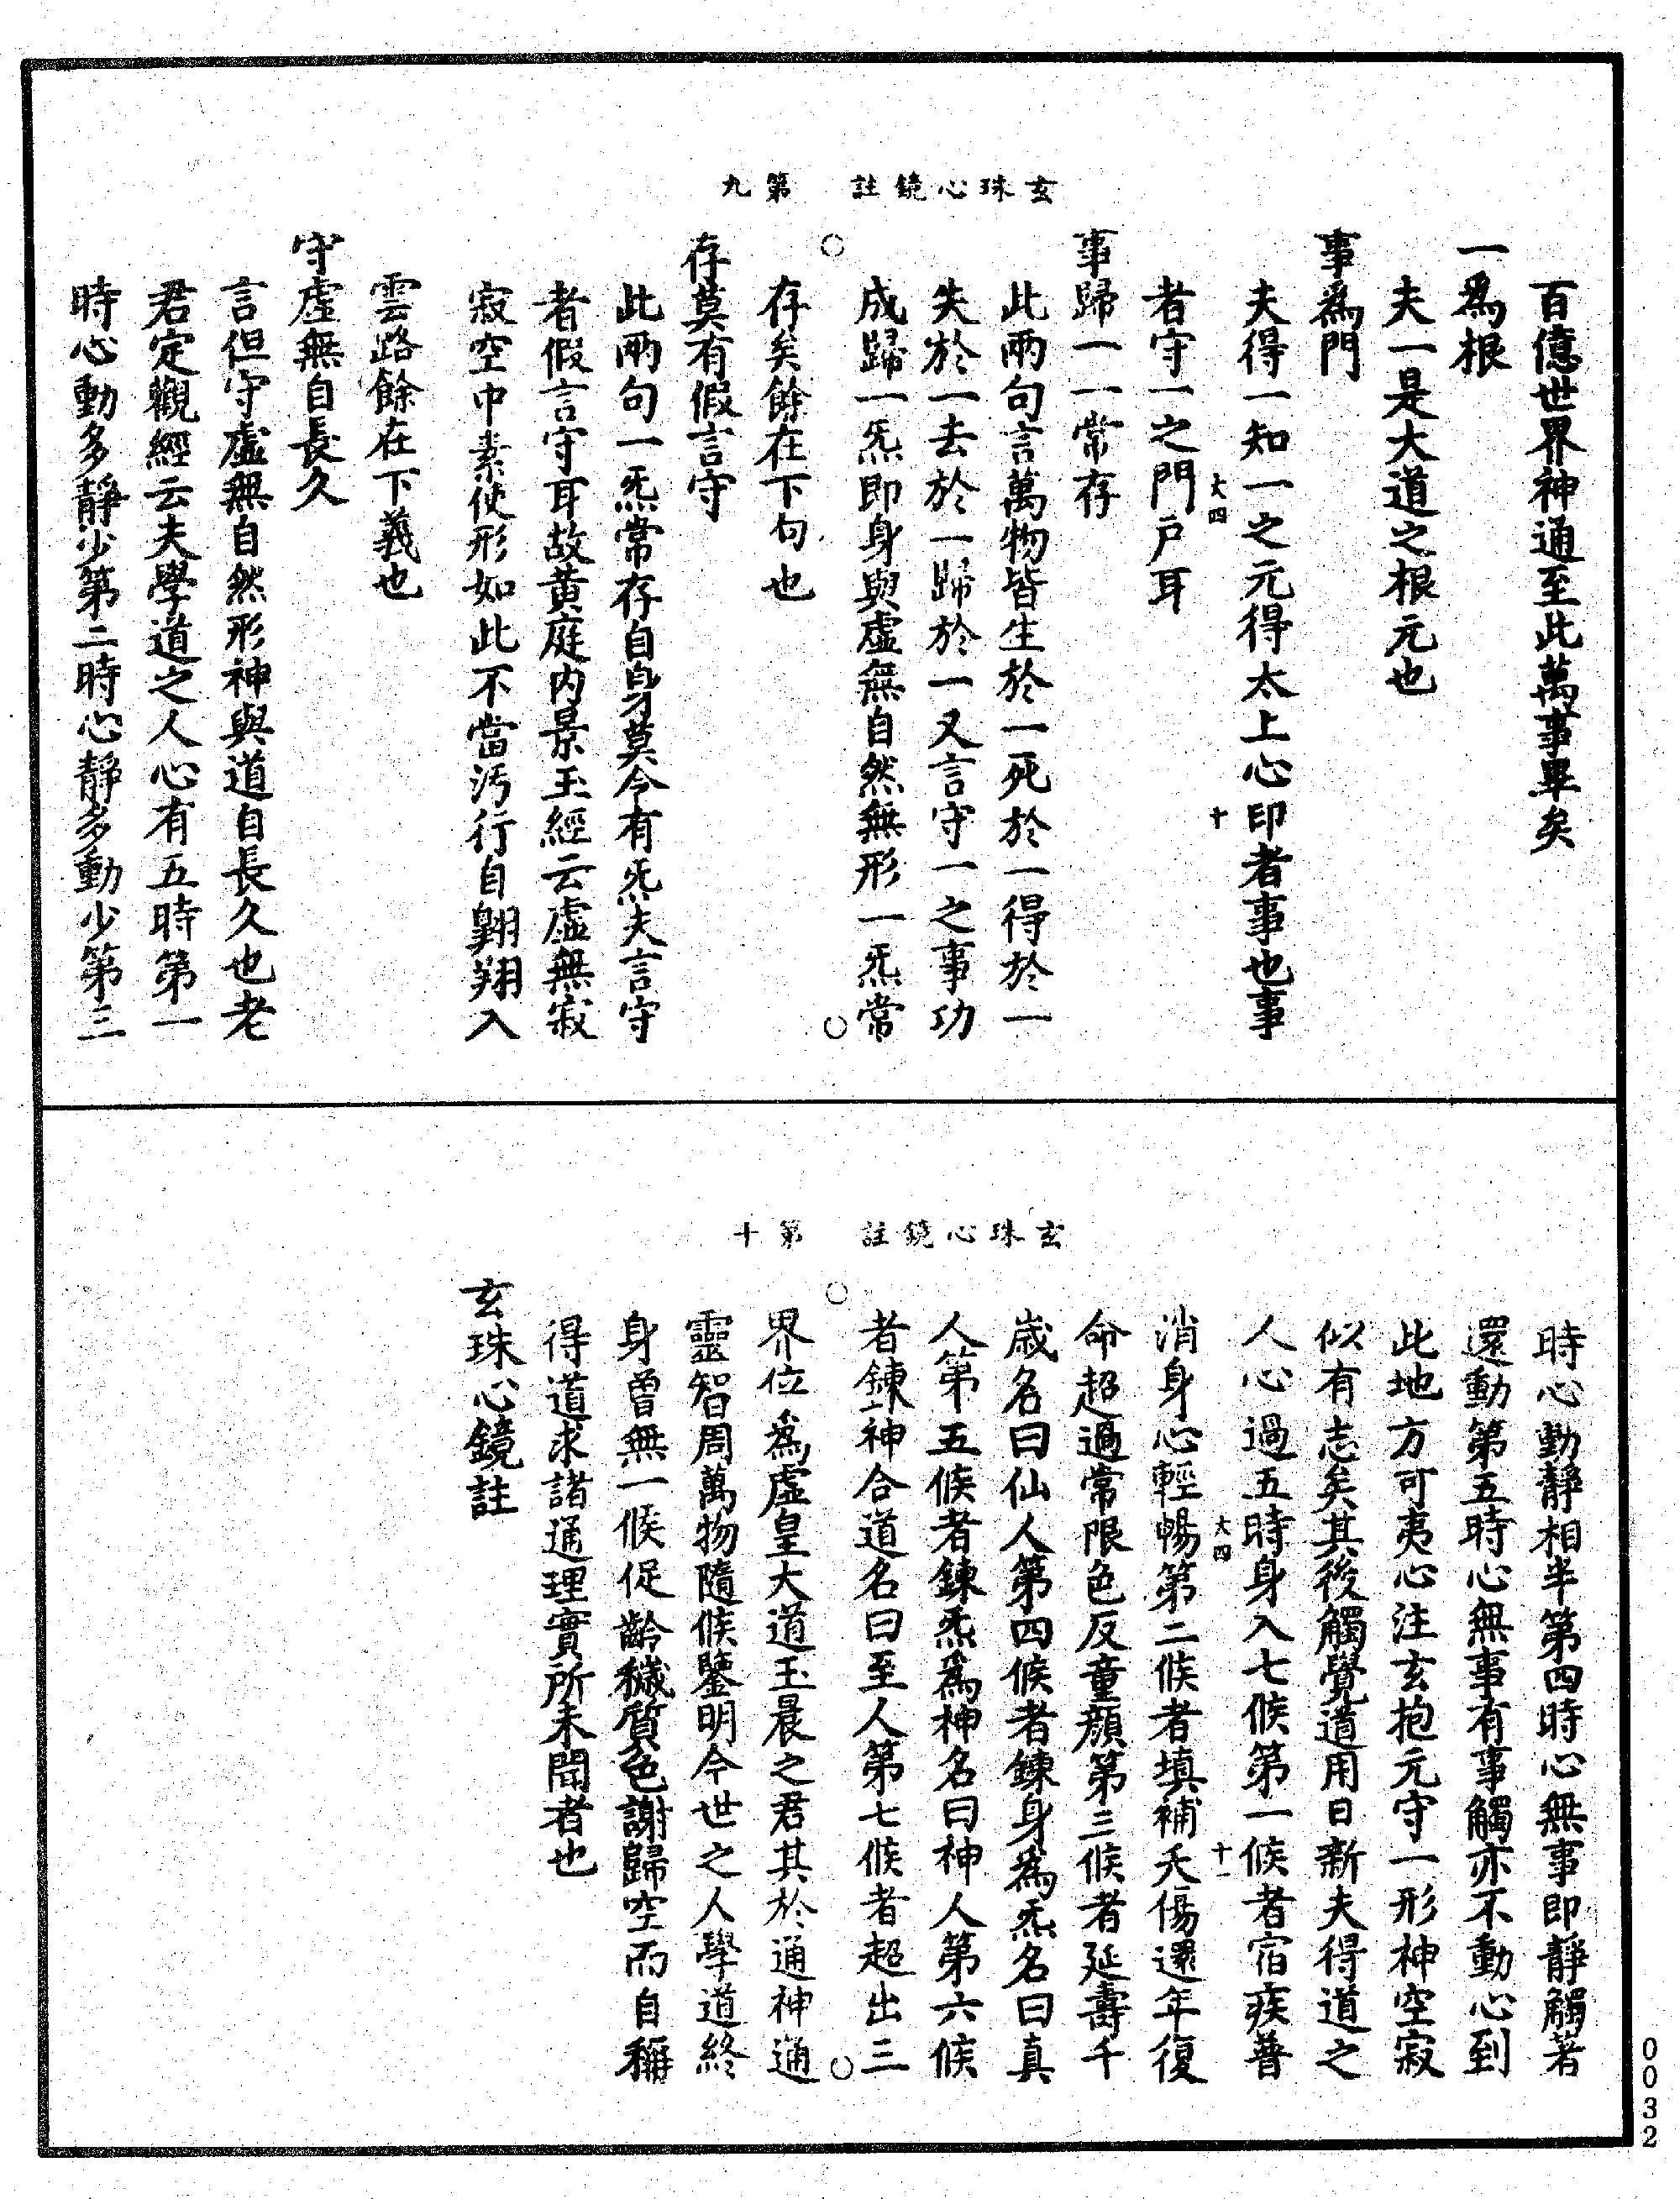 玄珠心鏡註　第九
百億世界神通至此萬事畢矣
一爲根
夫一是大道之根元也
事爲門
夫得一知一之元得太上心印者事也事
大四　十
者守一之門戶耳
事歸一一常存
此兩句言萬物皆生於一死於一得於一
失於一去於一歸於一又言守一之事功
成歸一炁即身與虛無自然無形一炁常
存矣餘在下句也
存莫有假言守
此兩句一炁常存自身莫令有炁夫言守
者假言守耳故黄庭内景玉經云虛無寂
寂空中素使形如此不當汚行自翱翔入
雲路餘在下義也
守虛無自長久
言但守虛無自然形神與道自長久也老
君定觀經云夫學道之人心有五時第一
時心動多靜少第二時心靜多動少第三
玄珠心鏡註　第十
時心動靜相半第四時心無事即靜觸著
還動第五時心無事有事觸亦不動心到
此地方可夷心注玄抱元守一形神空寂
似有志矣其後觸覺道用日新夫得道之
人心過五時身入七候第一候者宿疾普
大四　十一
消身心輕暢第二候者填補夭傷還年復
命超過常限色反童顏第三候者延壽千
歲名曰仙人第四候者鍊身爲炁名曰真
人第五候者鍊炁爲神名曰神人第六候
者鍊神合道名曰至人第七候者超出三
界位爲虛皇大道玉晨之君其於通神通
靈智周萬物隨候鑒明今世之人學道終
身曾無一候促齡穢質色謝歸空而自稱
得道求諸通理實所未聞者也
玄珠心鏡註
0032